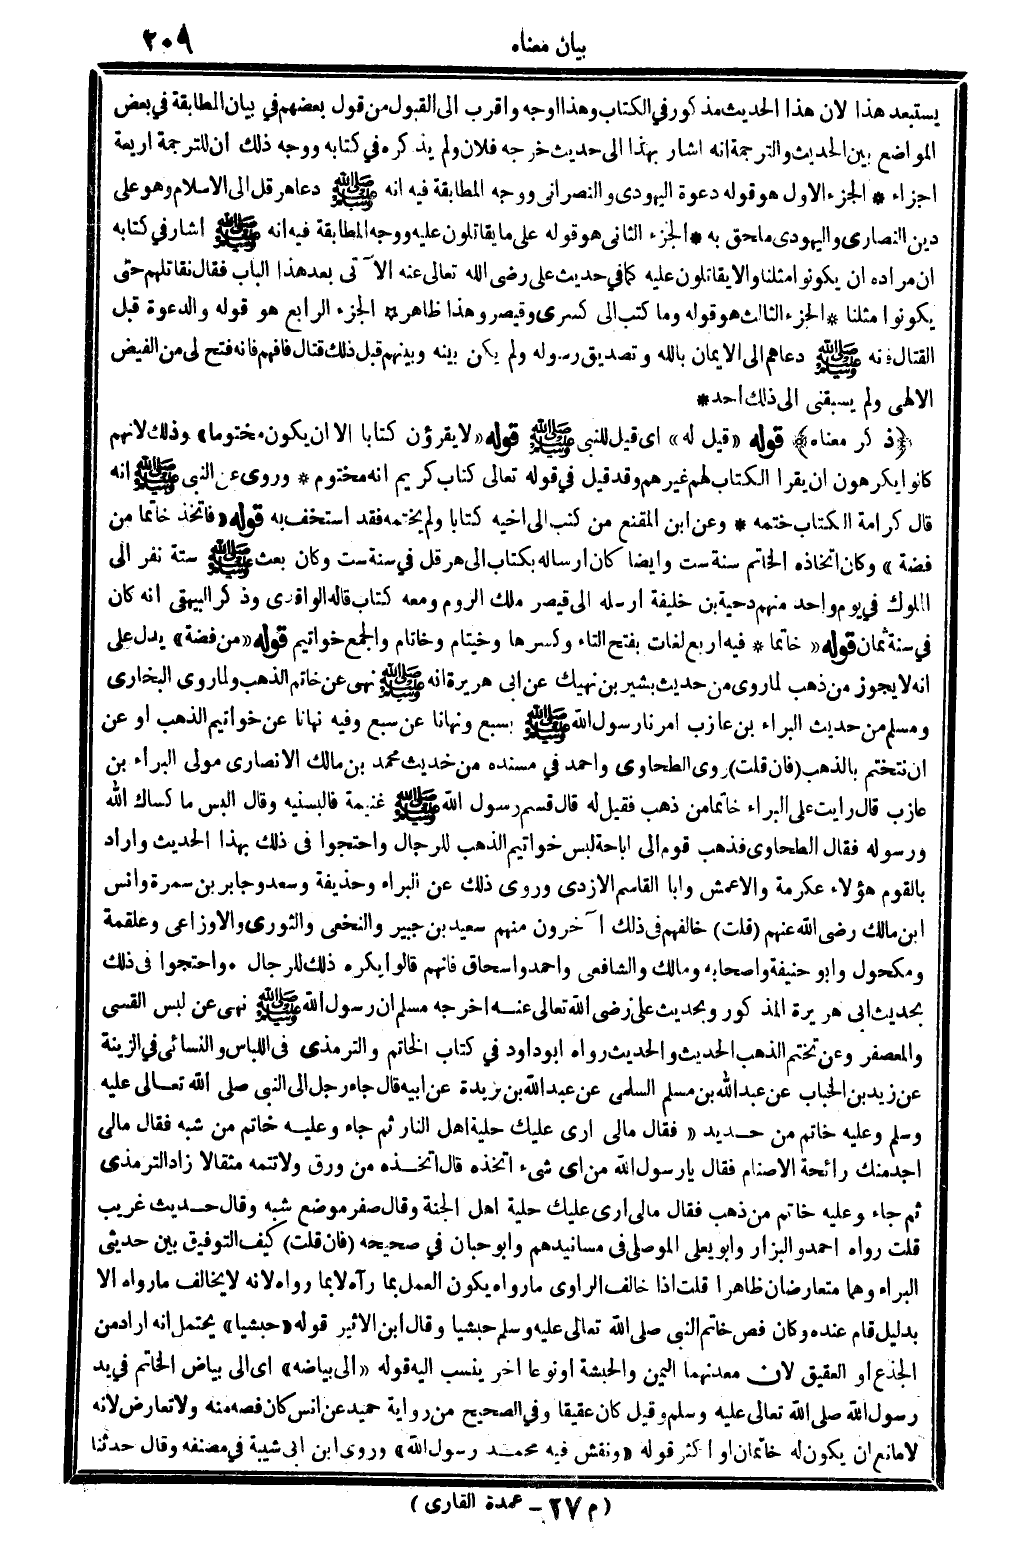 بيان معناه ٢٠٩
يستبعد هذا لان هذا الحديث مذكور في الكتاب وهذا اوجه واقرب الى القبول من قول بعضهم في بيان المطابقة في بعض
المواضع بين الحديث والترجمة انه اشار بهذا الى حديث خرجه فلان ولم يذكره في كتابه ووجه ذلك ان للترجمة اربعة
اجزاء * الجزء الاول هو قوله دعوة اليهودى والنصرانى ووجه المطابقة فيه انه ﷺ دعا هرقل الى الاسلام وهو على
دين النصارى واليهودى ملحق به * الجزء الثانى هو قوله على ما يقاتلون عليه ووجه المطابقة فيه انه ﷺ اشار في كتابه
ان مراده ان يكونوا مثلنا والا يقاتلون عليه كما في حديث على رضى الله تعالى عنه الآتى بعد هذا الباب فقال نقاتلهم حتى
يكونوا مثلنا * الجزء الثالث هو قوله وما كتب الى كسرى وقيصر وهذا ظاهر * الجزء الرابع هو قوله والدعوة قبل
القتال فانه ﷺ دعاهم الى الايمان بالله وتصديق رسوله ولم يكن بينه وبينهم قبل ذلك قتال فافهم فانه فتح لى من الفيض
الالهى ولم يسبقنى الى ذلك احد *
﴿ذكر معناه﴾ قوله «قيل له» اى قيل للنبى ﷺ قوله «لا يقرؤن كتابا الا ان يكون مختوما» وذلك لانهم
كانوا يكرهون ان يقرا الكتاب لهم غيرهم وقد قيل في قوله تعالى كتاب كريم انه مختوم * وروى عن النبى ﷺ انه
قال كرامة الكتاب ختمه * وعن ابن المقنع من كتب الى اخيه كتابا ولم يختمه فقد استخف به قوله «فاتخذ خاتما من
فضة» وكان اتخاذه الخاتم سنة ست وايضا كان ارساله بكتاب الى هرقل في سنة ست وكان بعث ﷺ ستة نفر الى
الملوك في يوم واحد منهم دحية بن خليفة ارسله الى قيصر ملك الروم ومعه كتاب قاله الواقدى وذكر البيهقى انه كان
في سنة ثمان قوله «خاتما» فيه اربع لغات بفتح التاء وكسرها وخيتام وخاتام والجمع خواتيم قوله «من فضة» يدل على
انه لا يجوز من ذهب لما روى من حديث بشير بن نهيك عن ابى هريرة انه ﷺ نهى عن خاتم الذهب ولما روى البخارى
ومسلم من حديث البراء بن عازب امرنا رسول الله ﷺ بسبع ونهانا عن سبع وفيه نهانا عن خواتيم الذهب او عن
ان نتختم بالذهب (فان قلت) روى الطحاوى واحمد في مسنده من حديث محمد بن مالك الانصارى مولى البراء بن
عازب قال رايت على البراء خاتما من ذهب فقيل له قال قسم رسول الله ﷺ غنيمة فالبسنيه وقال البس ما كساك الله
ورسوله فقال الطحاوى فذهب قوم الى اباحة لبس خواتيم الذهب للرجال واحتجوا فى ذلك بهذا الحديث واراد
بالقوم هؤلاء عكرمة والاعمش وابا القاسم الازدى وروى ذلك عن البراء وحذيفة وسعد وجابر بن سمرة وانس
ابن مالك رضى الله عنهم (قلت) خالفهم فى ذلك آخرون منهم سعيد بن جبير والنخعى والثورى والاوزاعى وعلقمة
ومكحول وابو حنيفة واصحابه ومالك والشافعى واحمد واسحاق فانهم قالوا يكره ذلك للرجال . واحتجوا فى ذلك
بحديث ابى هريرة المذكور وبحديث على رضى الله تعالى عنه اخرجه مسلم ان رسول الله ﷺ نهى عن لبس القسى
والمعصفر وعن تختم الذهب الحديث والحديث رواه ابو داود في كتاب الخاتم والترمذى فى اللباس والنسائى في الزينة
عن زيد بن الحباب عن عبد الله بن مسلم السلمى عن عبد الله بن بريدة عن ابيه قال جاء رجل الى النبى صلى الله تعالى عليه
وسلم وعليه خاتم من حديد « فقال مالى ارى عليك حلية اهل النار ثم جاء وعليه خاتم من شبه فقال مالى
اجد منك رائحة الاصنام فقال يا رسول الله من اى شىء اتخذه قال اتخذه من ورق ولا تتمه مثقالا زاد الترمذى
ثم جاء وعليه خاتم من ذهب فقال مالى ارى عليك حلية اهل الجنة وقال صفر موضع شبه وقال حديث غريب
قلت رواه احمد والبزار وابو يعلى الموصلى فى مسانيدهم وابو حبان في صحيحه (فان قلت) كيف التوفيق بين حديثى
البراء وهما متعارضان ظاهرا قلت اذا خالف الراوى ما رواه يكون العمل بما رآه لا بما رواه لانه لا يخالف ما رواه الا
بدليل قام عنده وكان فص خاتم النبى صلى الله تعالى عليه وسلم حبشيا وقال ابن الاثير قوله «حبشيا» يحتمل انه اراد من
الجذع او العقيق لان معدنهما اليمن والحبشة او نوعا اخر ينسب اليه قوله «الى بياضه» اى الى بياض الخاتم في يد
رسول الله صلى الله تعالى عليه وسلم وقيل كان عقيقا وفي الصحيح من رواية حميد عن انس كان فصه منه ولا تعارض لانه
لا مانع ان يكون له خاتمان او اكثر قوله «ونقش فيه محمد رسول الله» وروى ابن ابى شيبة في مصنفه وقال حدثنا
(م ٢٧ - عمدة القارى)